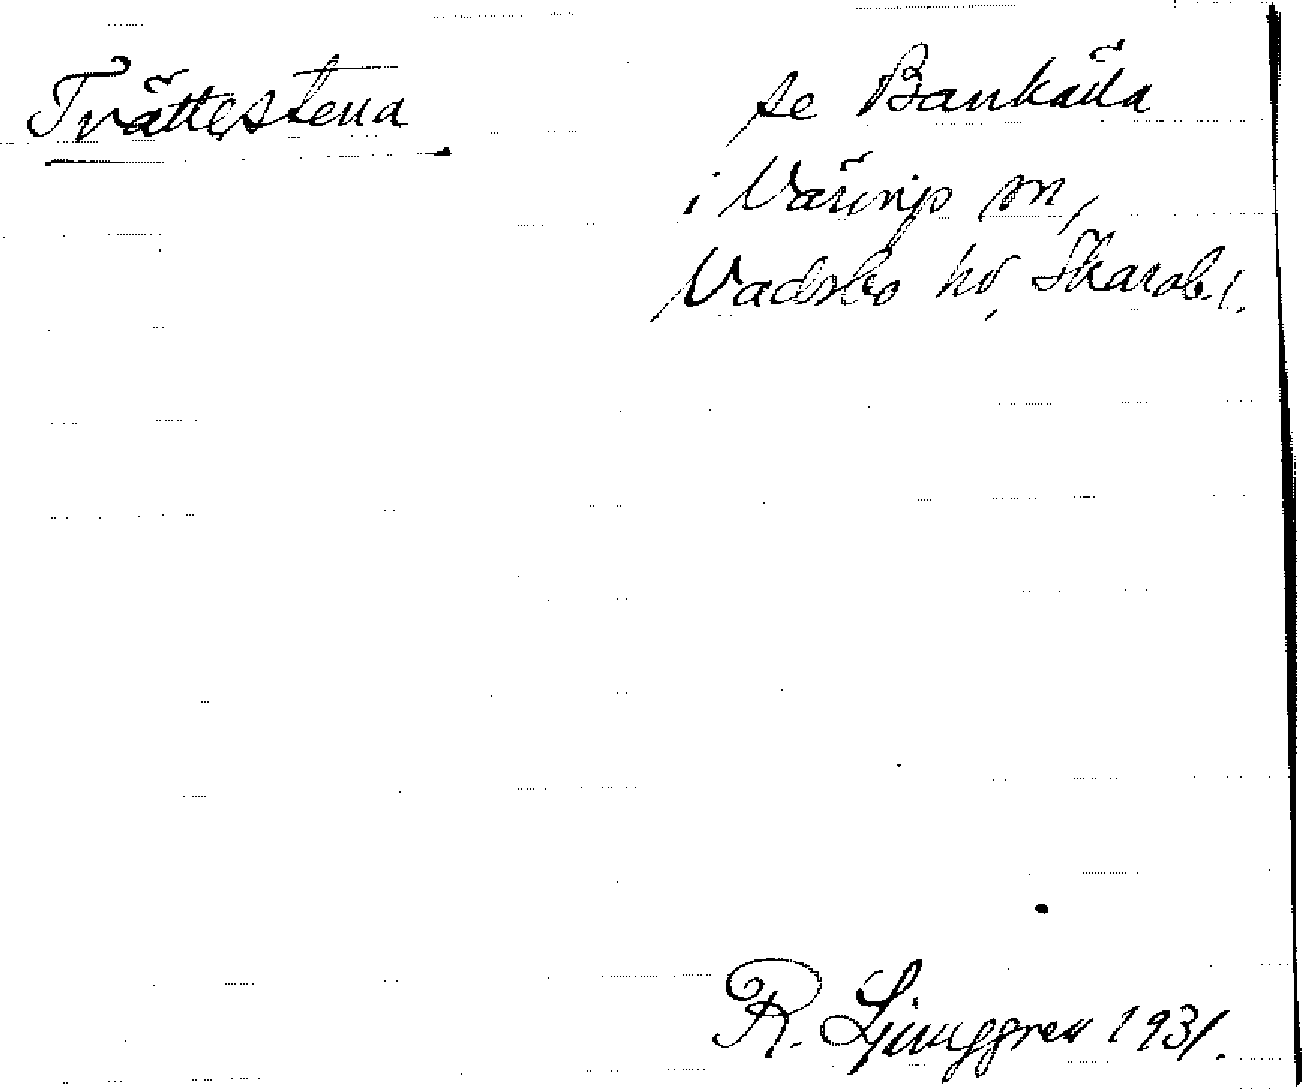 Trättestena
se Bankälla
i Värings sn,
Vadsbo hd, Skarab. l.
R. Ljunggren 1931.